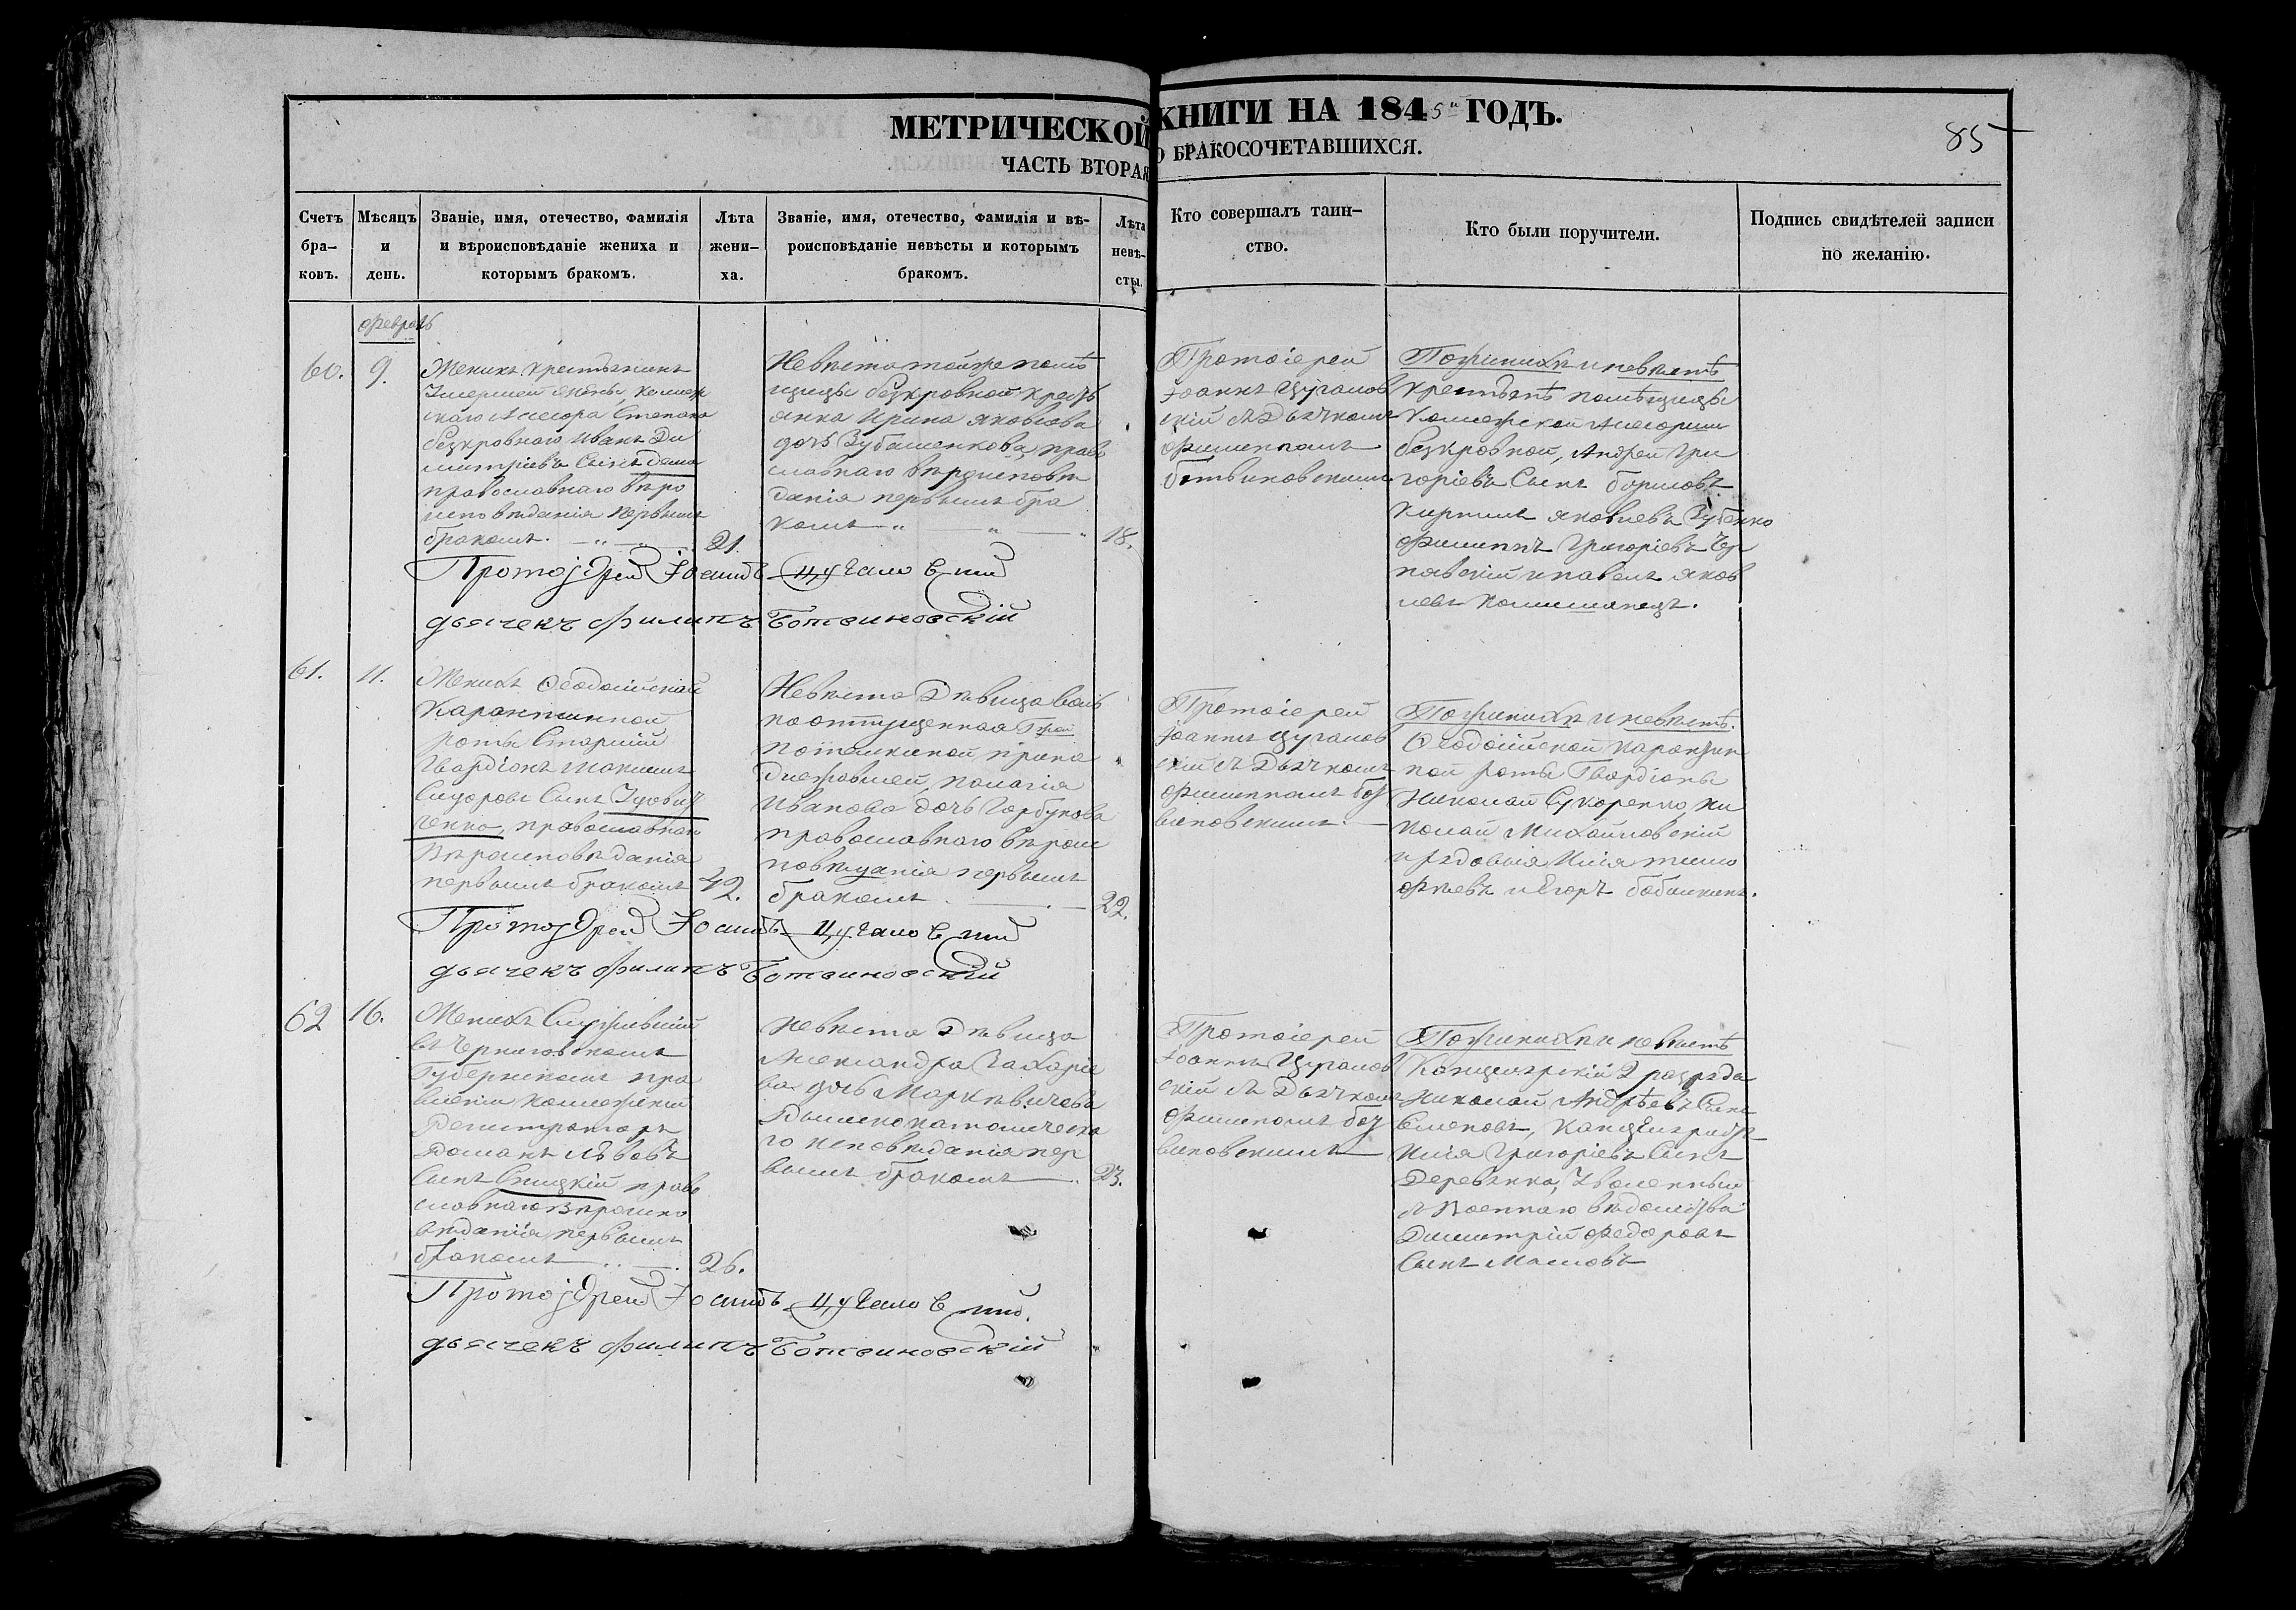 МЕТРИЧЕСКОЙ КНИГИ НА 1845й ГОДЪ.
85
ЧАСТЬ ВТОРАЯ О БРАКОСОЧЕТАВШИХСЯ.
Счетъ
бра-
ковъ.
Мѣсяцъ
и
день.
Званіе, имя, отечество, фамилія
и вѣроисповѣданіе жениха и
которымъ бракомъ.
Лѣта
жени-
ха.
Званіе, имя, отечество, фамилія и вѣ-
роисповѣданіе невѣсты и которымъ
бракомъ.
Лѣта
невѣ-
сты.
Кто совершалъ таин-
ство.
Кто были поручители.
Подпись свидѣтелей записи
по желанію.
февраль
60.
9.
Женихъ крестьянинъ
Умершей жены Коллеж
скаго Асесора Степана
безкровнаго Иванъ Ди
митріевъ Сынъ
православнаго вѣро
исповѣданія первымъ
бракомъ.
21.
Невѣста тойже помѣ
щицы безкровной крестъ
янка Ирина Яковлева
дочь Зубашенкова, право
славнаго вѣроисповѣ
данія первымъ бра
комъ
18.
Протоіерей
Іоаннъ Цуганов
скій съ Дьячкомъ
Филиппомъ
ботвиновскимъ
По женихѣ и невѣстѣ
крестьянѣ помѣщицы
Коллежской Асесорши
безкровной, Андрей Гри
горіевъ Сынъ борисовъ
Кириллъ Яковлевъ Зубенко
Филиппъ Григоріевъ Чер
нявскій и павелъ Яков
левъ
Протоіерей Іоаннъ Цугановскій
дьячекъ филипъ Ботвиновскій
61.
11.
Женихъ Ѳеодосійской
Карантинной
роты Старшій
Гвардіонъ
Сидоровъ Сынъ
ченко, православнаго
Вѣроисповѣданія
первымъ бракомъ
42.
Невѣста Дѣвица воль
ноотпущенная
Потемкиной, прина
длежавшей, Пелагія
Иванова дочь Горбунова
православнаго вѣроис
повѣданія первымъ
бракомъ
22.
Протоіерей
Іоаннъ Цуганов
скій съ Дьячкомъ
Филиппомъ бот
виновскимъ
По женихѣ и невѣстѣ.
Ѳеодосійской Карантин
ной роты Гвардіоны
Николай Сукоренко, Ни
колай Михайловскій
и рядовыя Илія тимо
фѣевъ и Егоръ бабашкинъ.
Протоіерей Іоаннъ Цугановскій
дьячекъ филипъ Ботвиновскій
62
16.
Женихъ Служившій
въ Черниговскомъ
Губернскомъ пра
вленіи Коллежскій
Регистраторъ
Романъ Львовъ
Сынъ право
славнаго Вѣроиспо
вѣданія, первымъ
бракомъ
26.
Невѣста Дѣвица
Александра Захаріе
ва дочь Маркѣвичева
Римскокатолическа
го исповѣданія пер
вымъ бракомъ
23.
Протоіерей
Іоаннъ Цуганов
скій съ Дьячкомъ
Филиппомъ бот
виновскимъ
По женихѣ и невѣстѣ
Канцелярскій 2 разряда
Николай Андрѣевъ Сынъ
Семеновъ, Канцеляристъ
Илія Григоріевъ Сынъ
Деревянко, Уволенный
съ Военнаго вѣдомства
Димитрій Федоровъ
Сынъ Масловъ
Протоіерей Іоаннъ Цугановскій.
дьячекъ филипъ Ботвиновскій